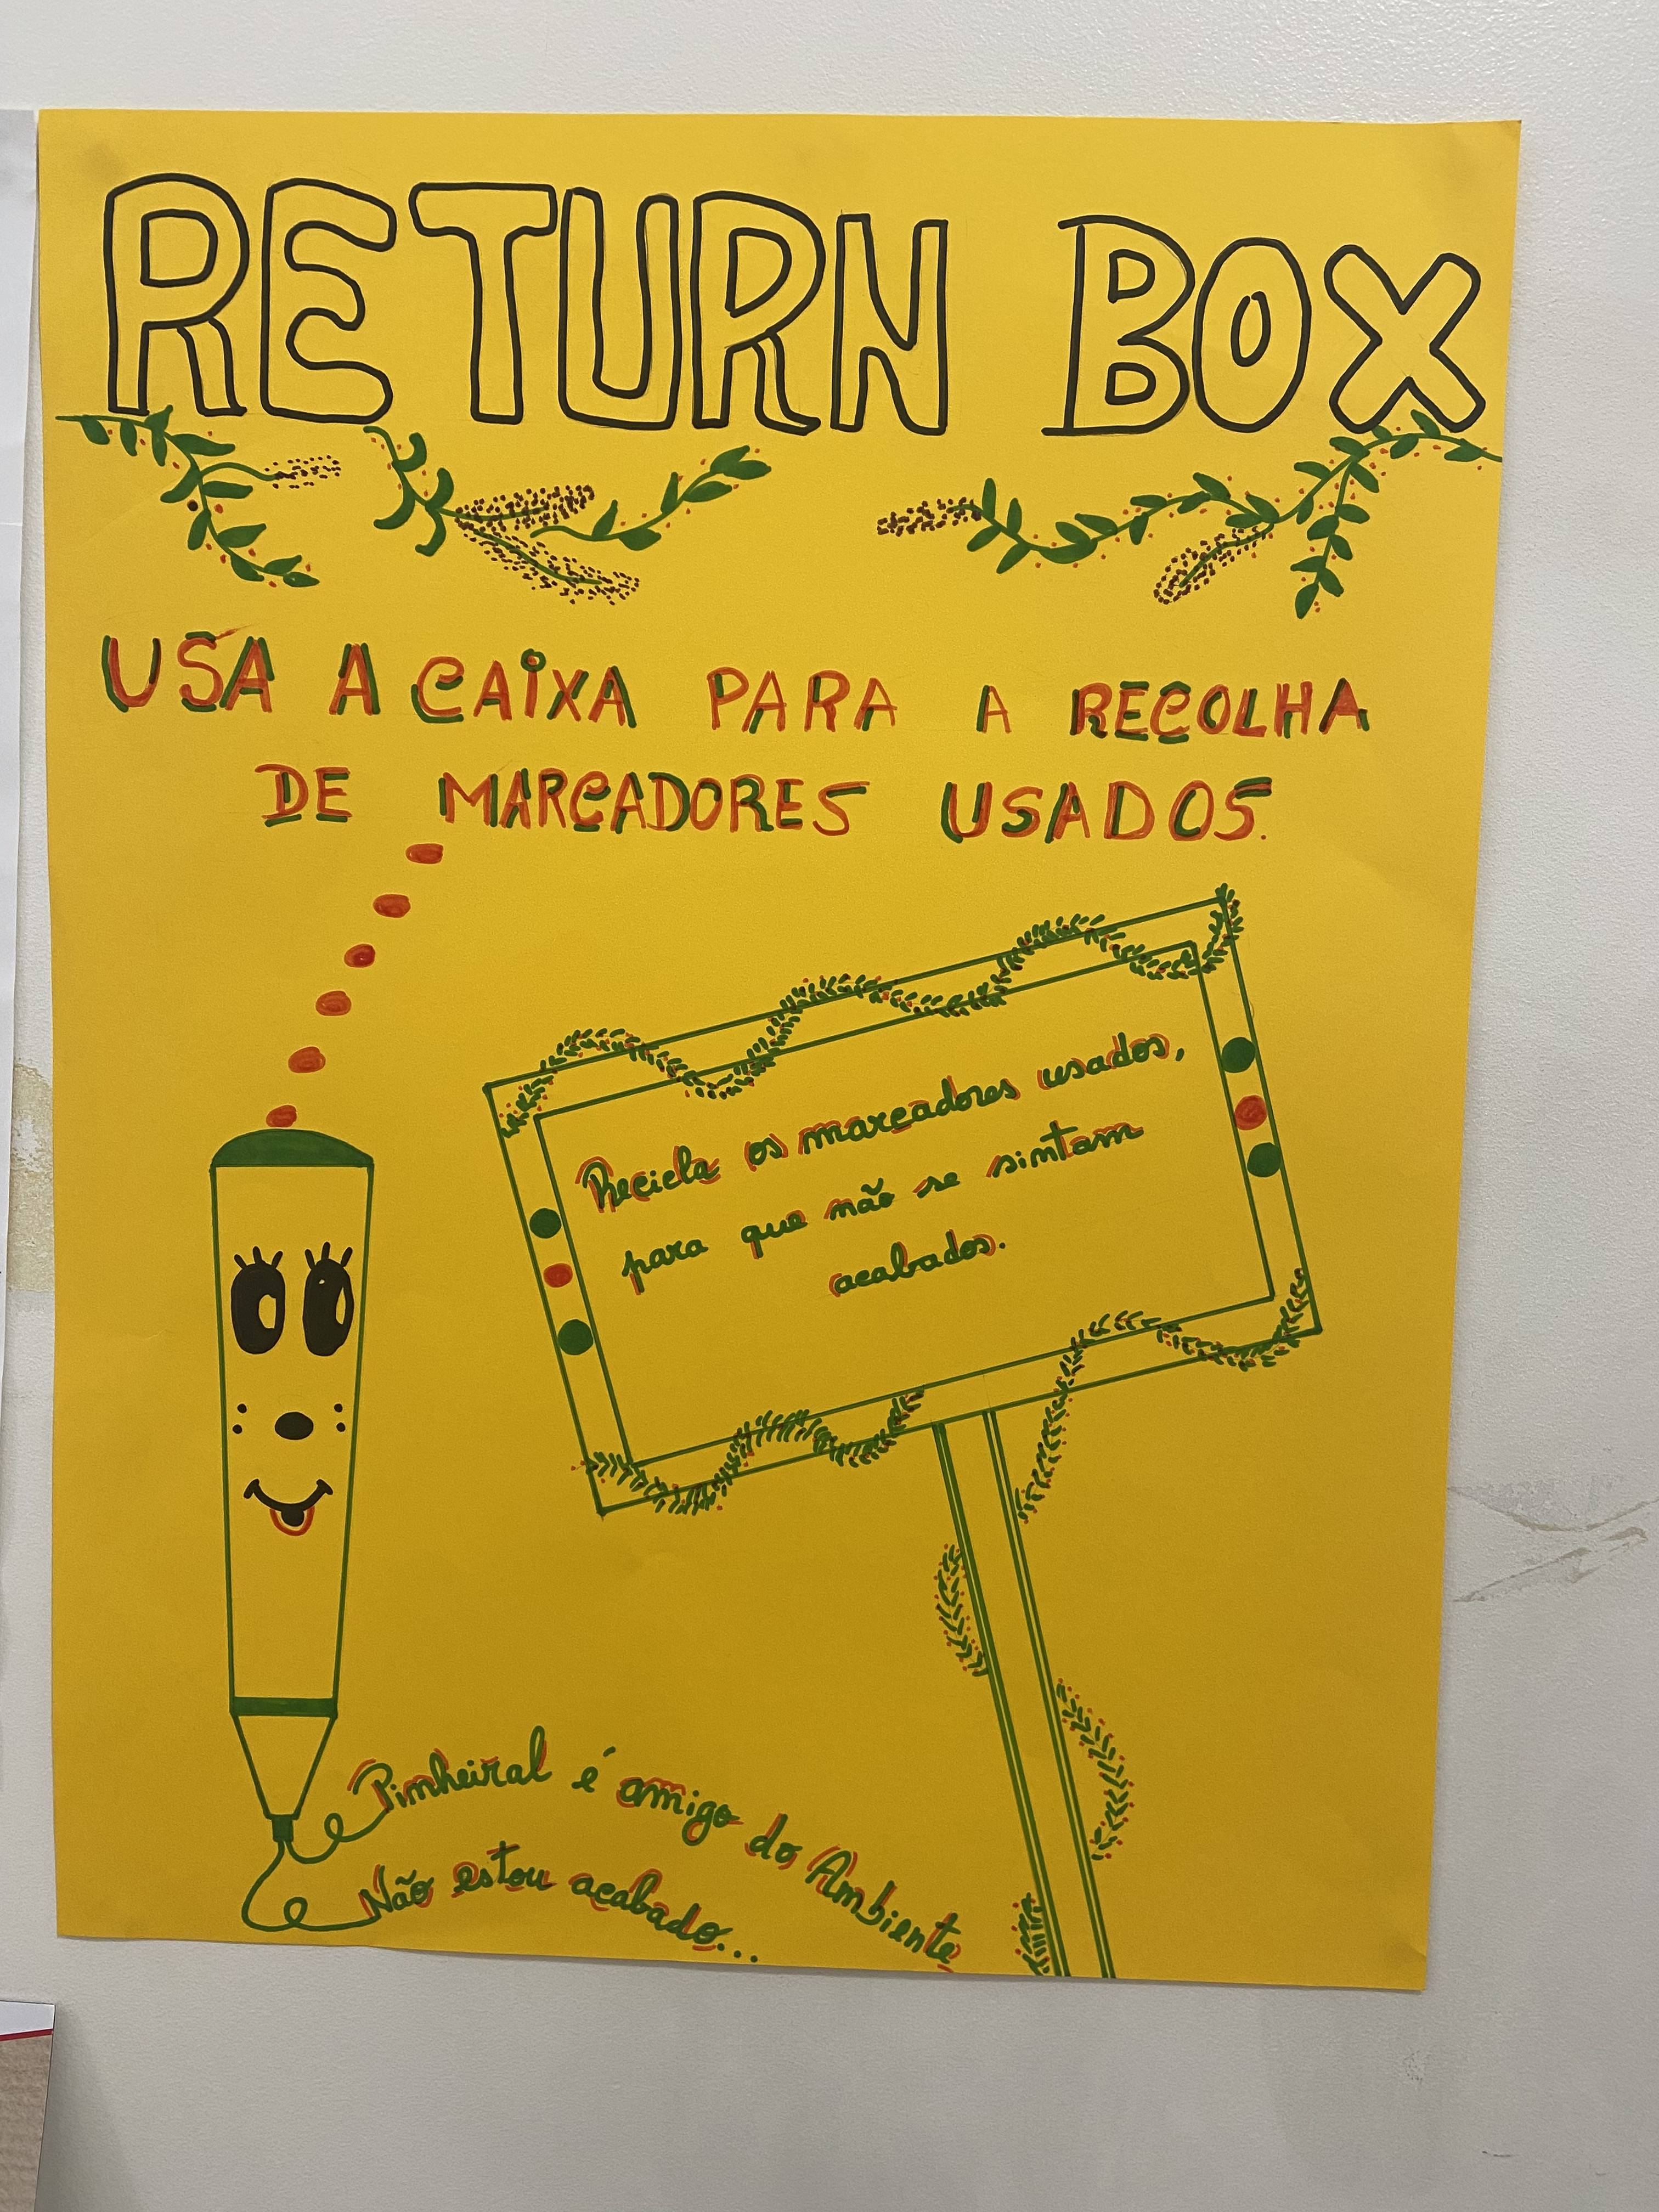 RETURN BOX
USA A CAIXA PARA A RECOLHA
DE MARCADORES USADOS.
Recicla os marcadores usados,
para que não se sintam
acabados.
Pinheiral é amigo do Ambiente
Não estou acabado...